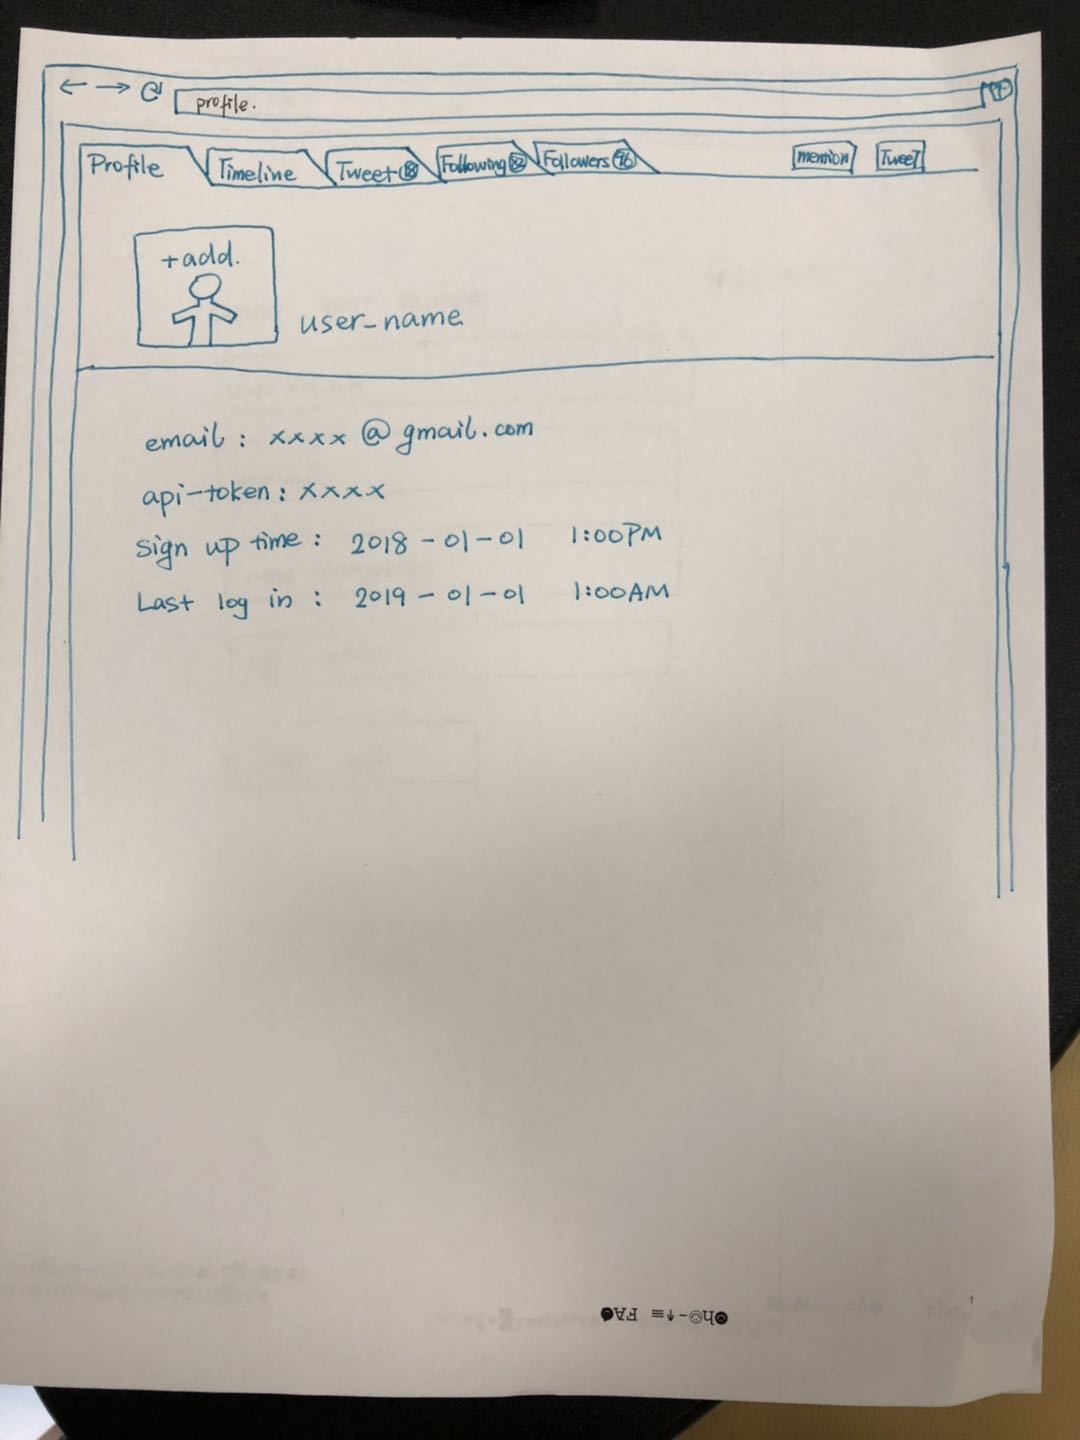 profile.
Profile Timeline Tweet Following Followers mention Tweet
+add.
user_name
email : xxxx @ gmail.com
api-token : xxxx
Sign up time : 2018-01-01 1:00PM
Last log in : 2019-01-01 1:00AM